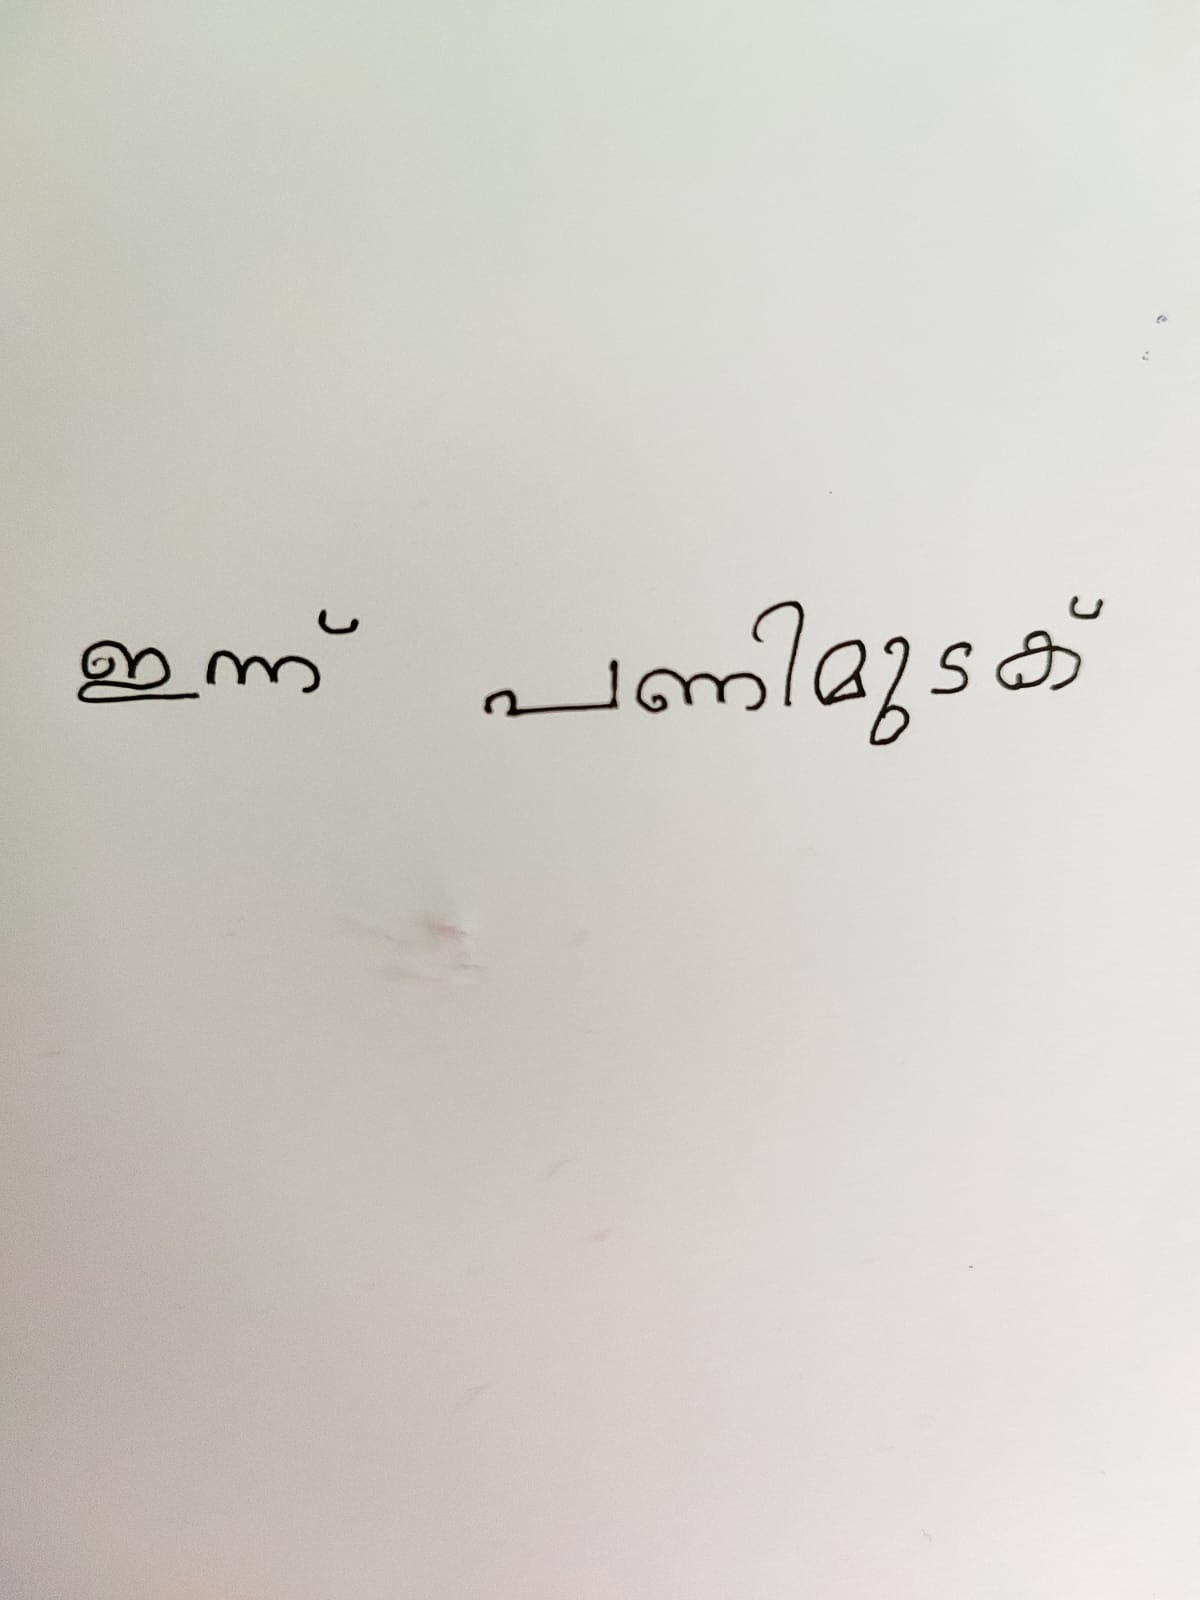 ഇന്ന് പണിമുടക്